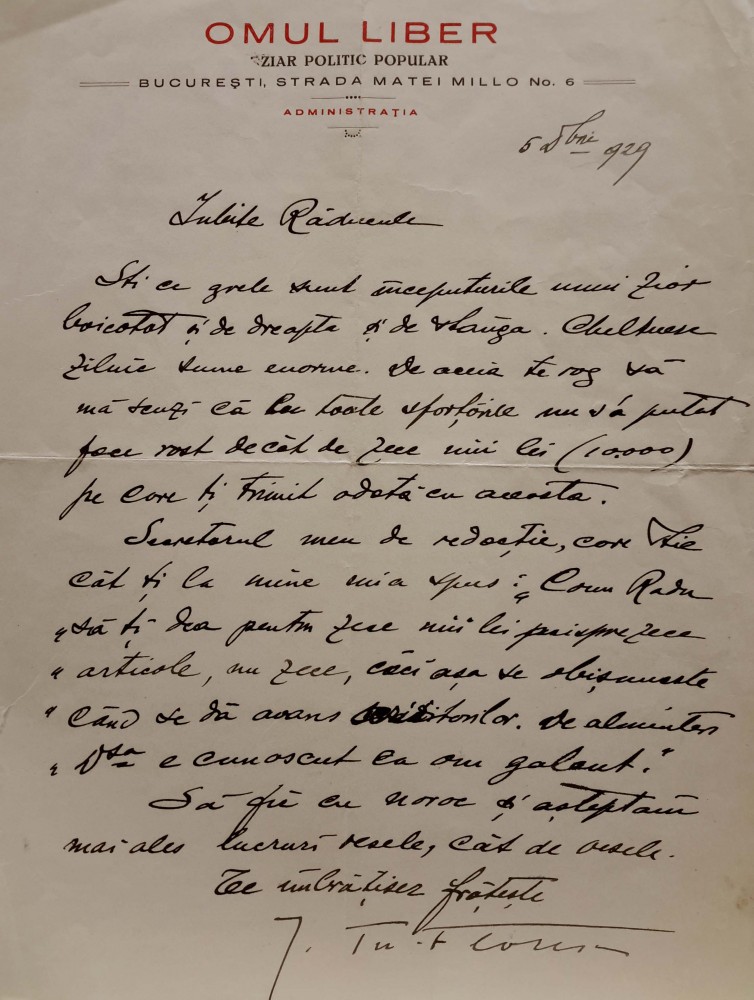 OMUL LIBER
ZIAR POLITIC POPULAR
BUCUREȘTI, STRADA MATEI MILLO No. 6
ADMINISTRAȚIA
6 Dbrie 929
Iubite Răducule
Sti ce grele sunt începuturile unui ziar
boicotat și de dreapta și de stânga. Cheltuesc
zilnic sume enorme. De aceia te rog să
mă scuzi că cu toate sforțările nu s'a putut
face rost decât de zece mii lei (10.000)
pe care ți trimit odată cu aceasta.
Secretarul meu de redacție, care știe
cât ți la mine mi a spus: „Conu Radu
„să ți dea pentru zece mii lei paisprezece
„ articole, nu zece, căci așa se obișnuește
„ când se dă avans scriitorilor. De alminteri
„ Dsa e cunoscut ca om galant."
Să fie cu noroc și așteptăm
mai ales lucruri vesele, cât de vesele.
Te îmbrățișez frățește